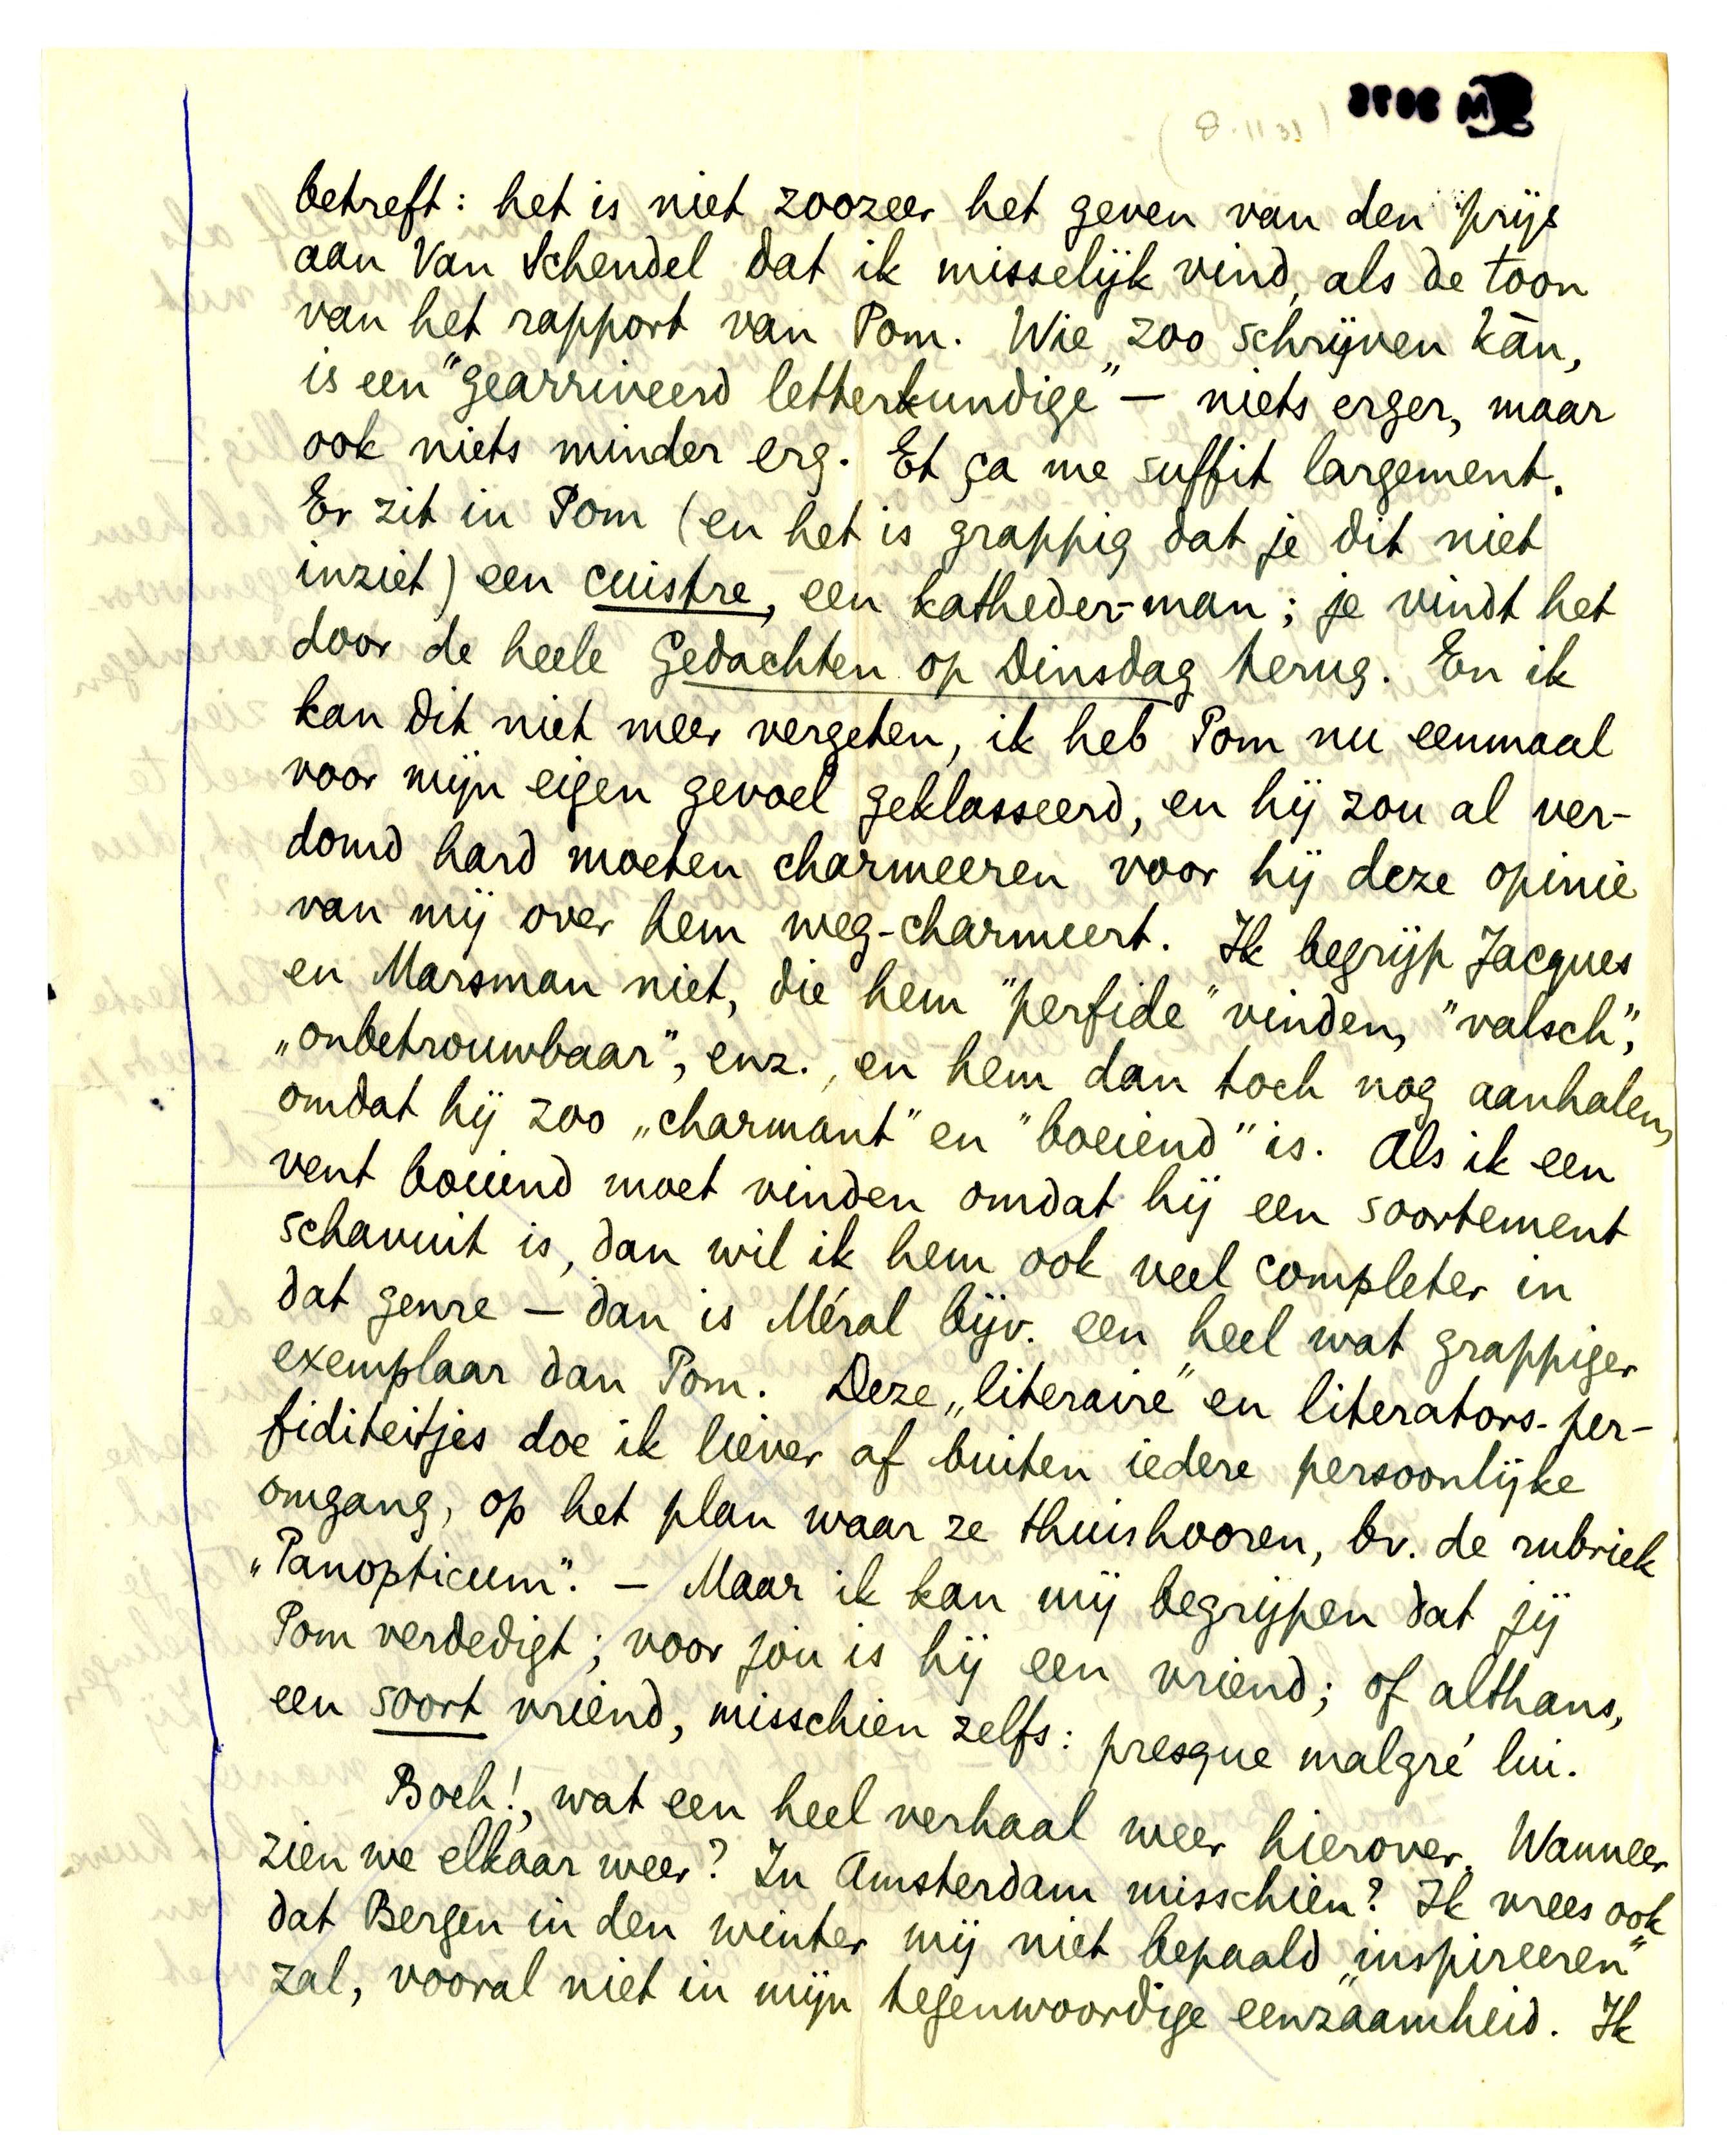 (8.11.31)
betreft: het is niet zoozeer het geven van den prijs
aan Van Schendel dat ik misselijk vind, als de toon
van het rapport van Pom. Wie zoo schrijven kān,
is een "gearriveerd letterkundige" — niets erger, maar
ook niets minder erg. Et ça me suffit largement.
Er zit in Pom (en het is grappig dat je dit niet
inziet) een cuistre, een katheder-man; je vindt het
door de heele Gedachten op Dinsdag terug. En ik
kan dit niet meer vergeten, ik heb Pom nu eenmaal
voor mijn eigen gevoel geklasseerd, en hij zou al ver-
domd hard moeten charmeeren voor hij deze opinie
van mij over hem weg-charmeert. Ik begrijp Jacques
en Marsman niet, die hem "perfide" vinden, "valsch",
„onbetrouwbaar", enz., en hem dan toch nog aanhalen,
omdat hij zoo „charmant" en "boeiend" is. Als ik een
vent boeiend moet vinden omdat hij een soortement
schavuit is, dan wil ik hem ook veel completer in
dat genre — dan is Méral bijv. een heel wat grappiger
exemplaar dan Pom. Deze „literaire" en literators-per-
fiditeitjes doe ik liever af buiten iedere persoonlijke
omgang, op het plan waar ze thuishooren, bv. de rubriek
„Panopticum". — Maar ik kan mij begrijpen dat jij
Pom verdedigt; voor jou is hij een vriend; of althans,
een soort vriend, misschien zelfs: presque malgré lui.
Boeh!, wat een heel verhaal weer hierover. Wanneer
zien we elkaar weer? In Amsterdam misschien? Ik vrees ook
dat Bergen in den winter mij niet bepaald „inspireeren"
zal, vooral niet in mijn tegenwoordige eenzaamheid. Ik